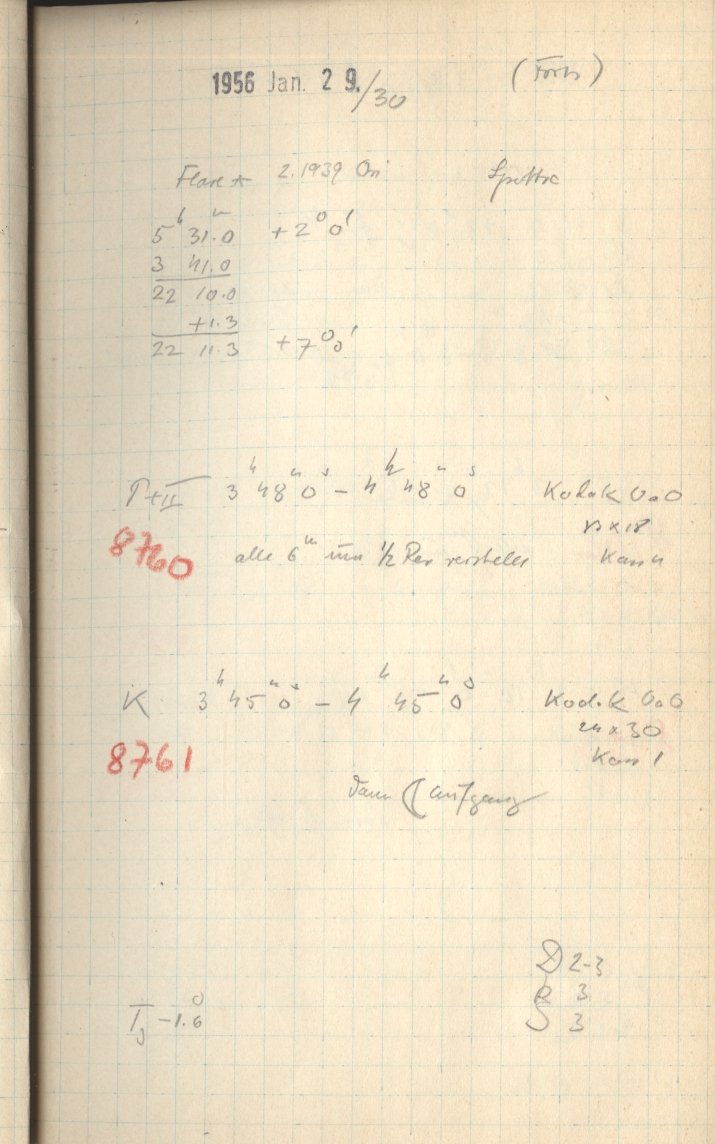 1956 Jan. 29./30 (Forts)
Flare * 2.1939 Ori Spektra
5h 31m.0 +2° 0'
3 41.0
22 10.0
+1.3
22 11.3 +7° 0'
T+II 3h 48m 0s – 4h 48m 0s Kodak OaO
13 x 18
8760 alle 6m um 1/2 Rev verstellt Kass 4
K 3h 45m 0s – 4h 45m 0s Kodak OaO
24 x 30
8761 Kass 1
Dann ☾ Aufgang
D 2-3
R 3
Tj –1.°6 S 3